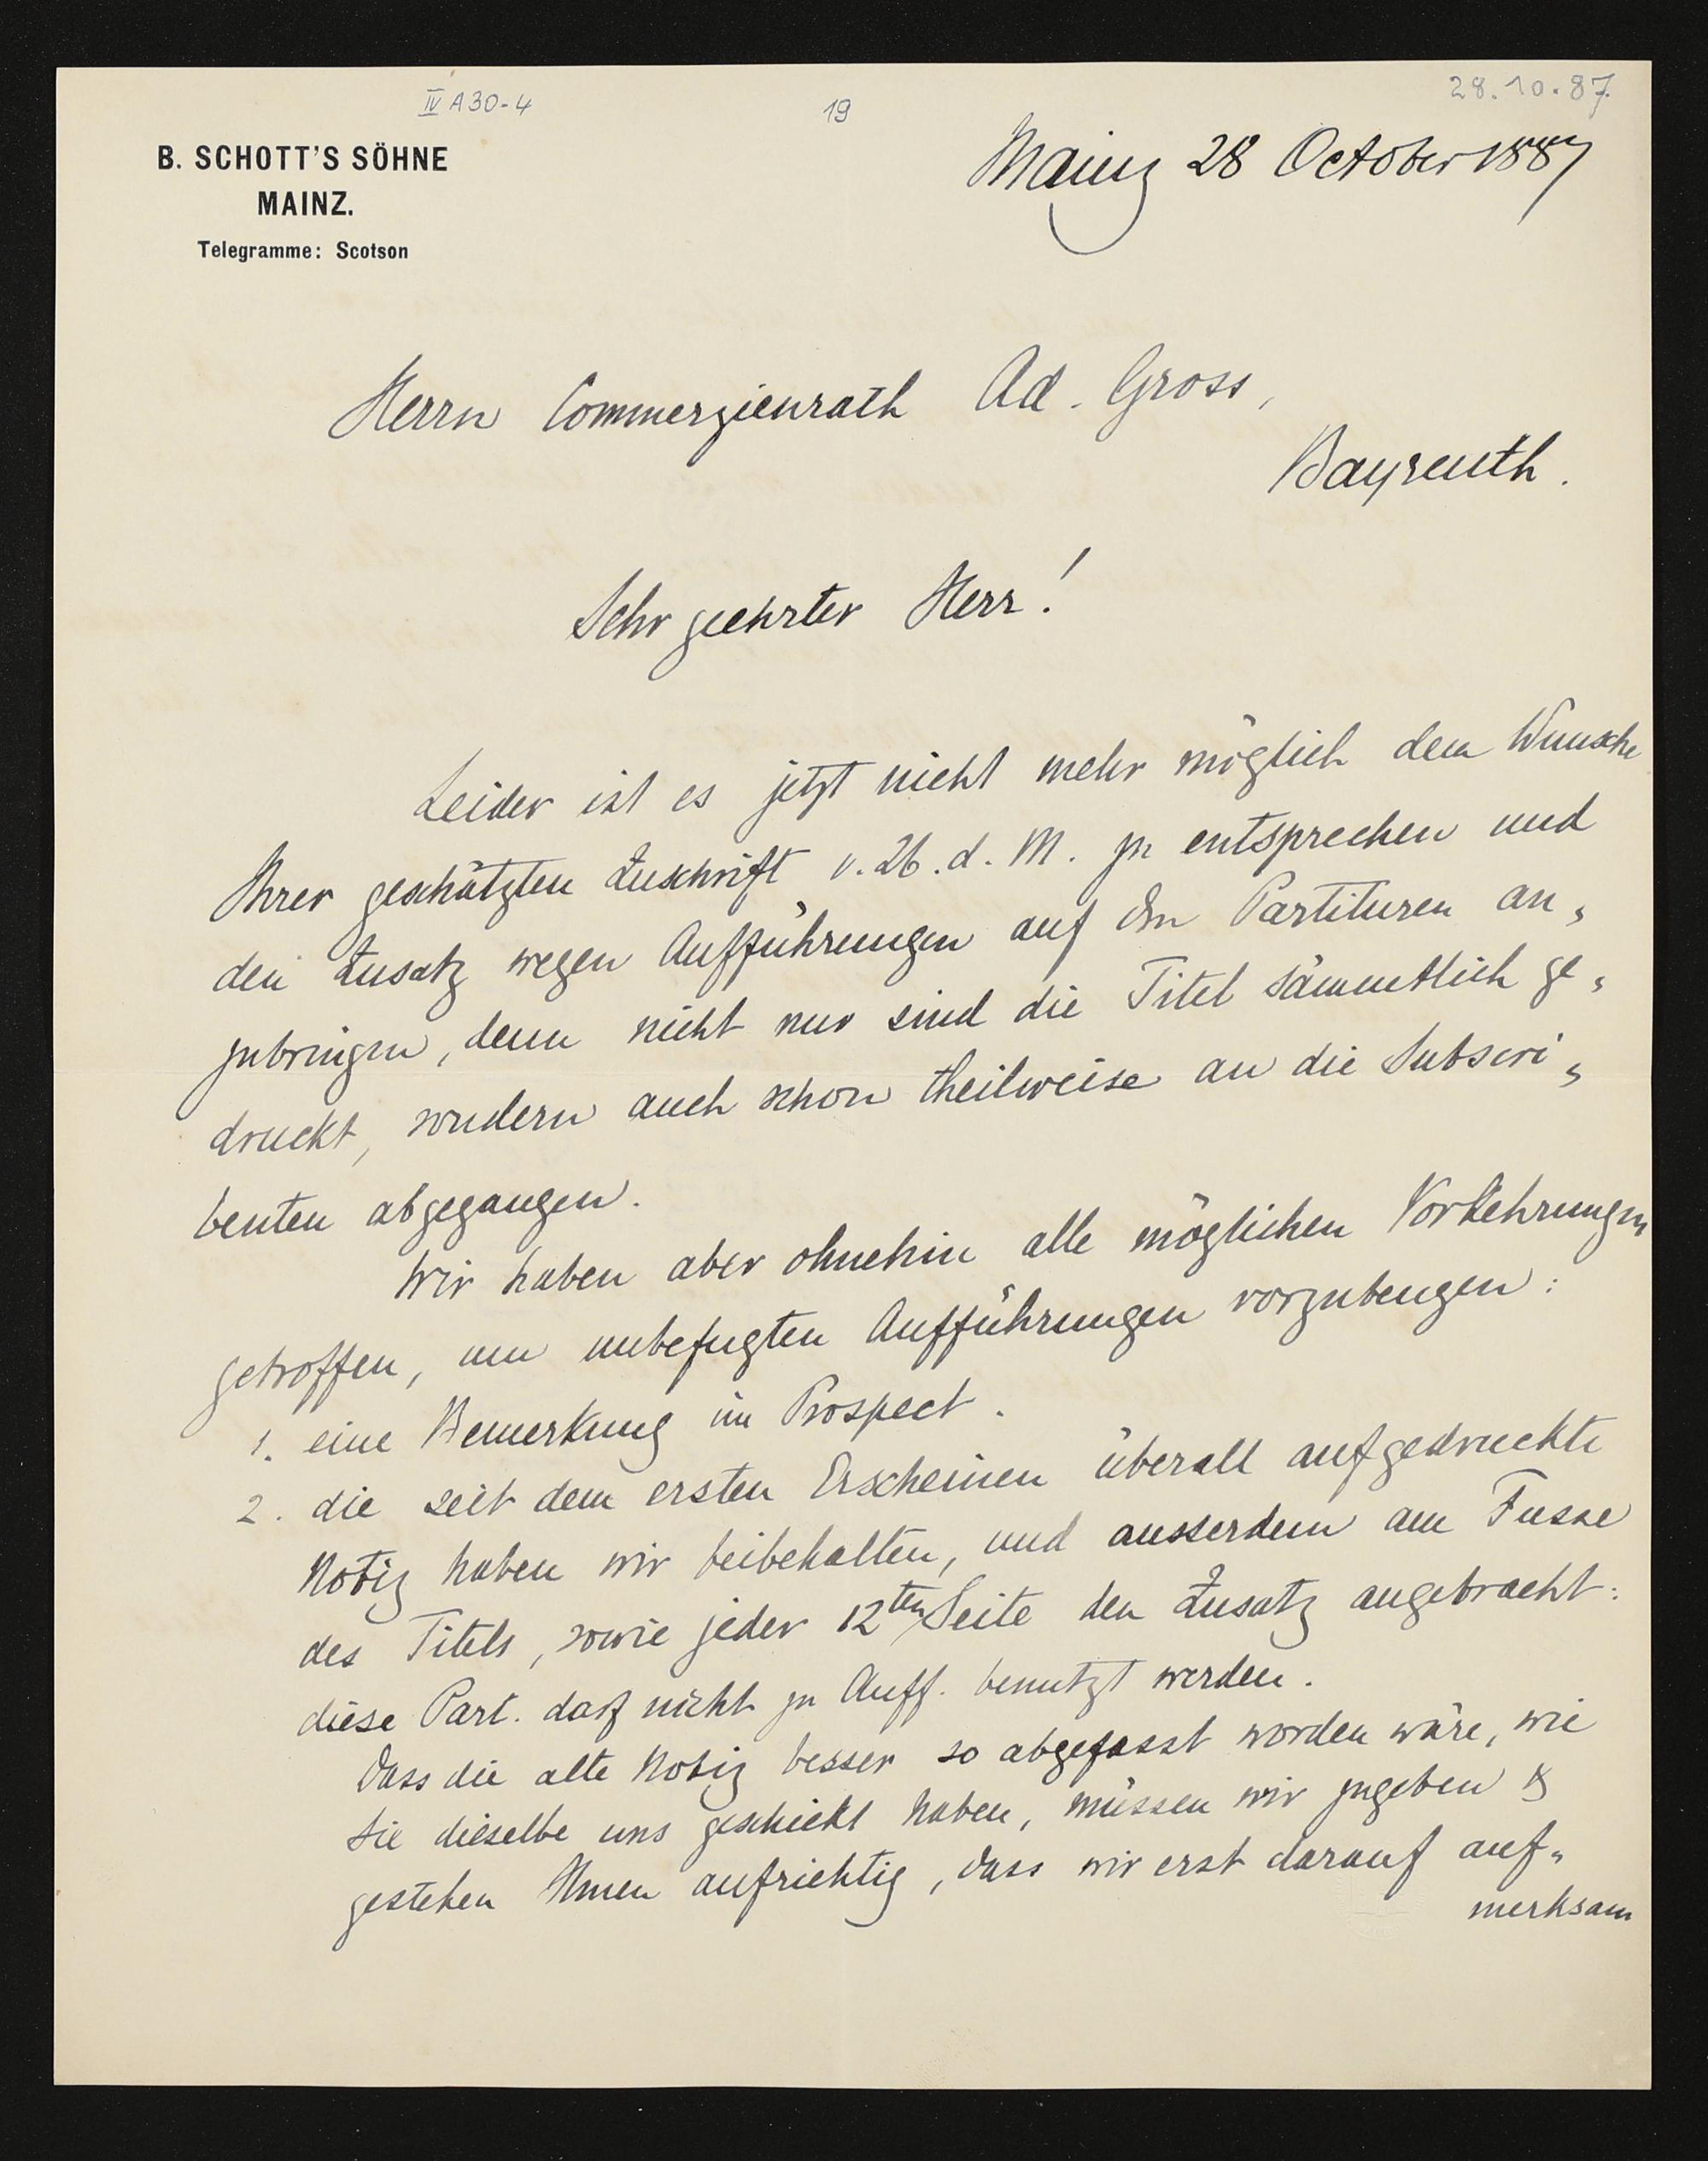 IV A30-4
19
28.10.87.
B. SCHOTT'S SÖHNE
MAINZ.
Telegramme: Scotson
Mainz 28 October 1887
Herrn Commerzienrath Ad. Gross,
Bayreuth.
Sehr geehrter Herr!
Leider ist es jetzt nicht mehr möglich dem Wunsche
Ihrer geschätzten Zuschrift v. 26. d. M. zu entsprechen und
den Zusatz wegen Aufführungen auf den Partituren an„
zubringen, denn nicht nur sind die Titel sämmtlich ge„
druckt, sondern auch schon theilweise an die Subscri„
benten abgegangen.
Wir haben aber ohnehin alle möglichen Vorkehrungen
getroffen, um unbefugten Aufführungen vorzubeugen:
1. eine Bemerkung im Prospect.
2. die seit dem ersten Erscheinen überall aufgedruckte
Notiz haben wir beibehalten, und ausserdem am Fusse
des Titels, sowie jeder 12ten Seite den Zusatz angebracht:
diese Part. darf nicht zu Auff. benutzt werden.
Dass die alte Notiz besser so abgefasst worden wäre, wie
Sie dieselbe uns geschickt haben, müssen wir zugeben &
gestehen Ihnen aufrichtig, dass wir erst darauf auf„
merksam